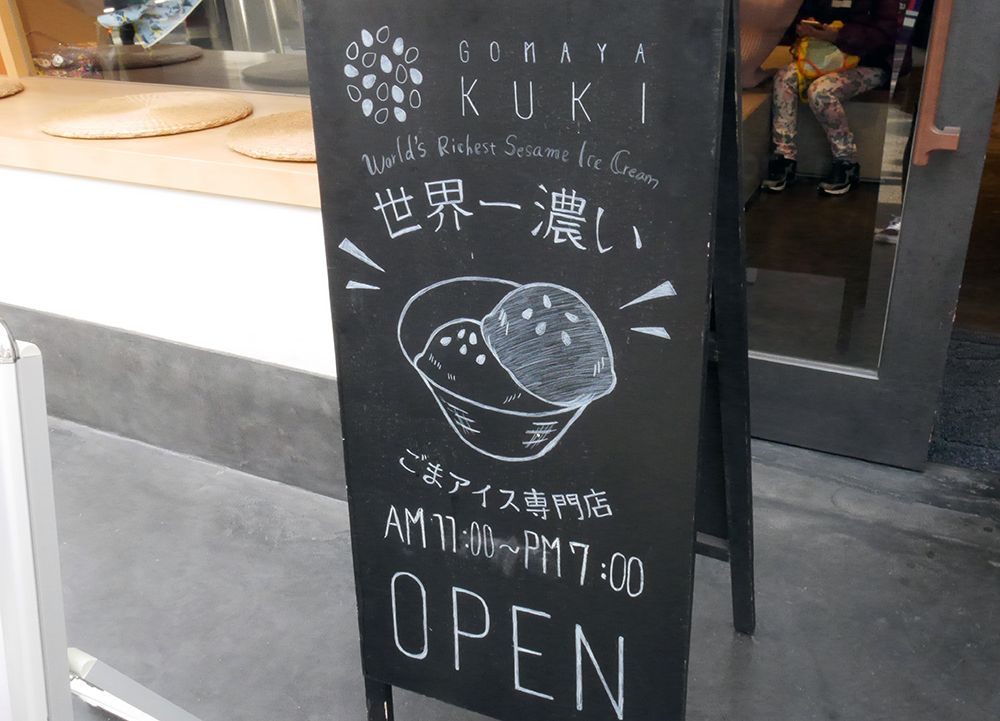 GOMAYA
KUKI
World's Richest Sesame Ice Cream
世界一濃い
ごまアイス専門店
AM 11:00～PM 7:00
OPEN